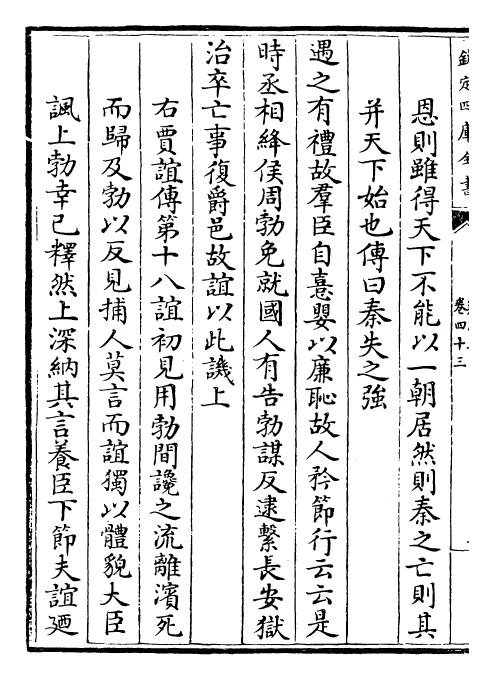 欽定四庫全書
卷四十三
恩則雖得天下不能以一朝居然則秦之亡則其
并天下始也傳曰秦失之強
遇之有禮故羣臣自憙嬰以廉恥故人矜節行云云是
時丞相絳侯周勃免就國人有告勃謀反逮繫長安獄
治卒亡事復爵邑故誼以此譏上
右賈誼傳第十八誼初見用勃間讒之流離濱死
而歸及勃以反見捕人莫言而誼獨以體貌大臣
諷上勃幸已釋然上深納其言養臣下節夫誼廼